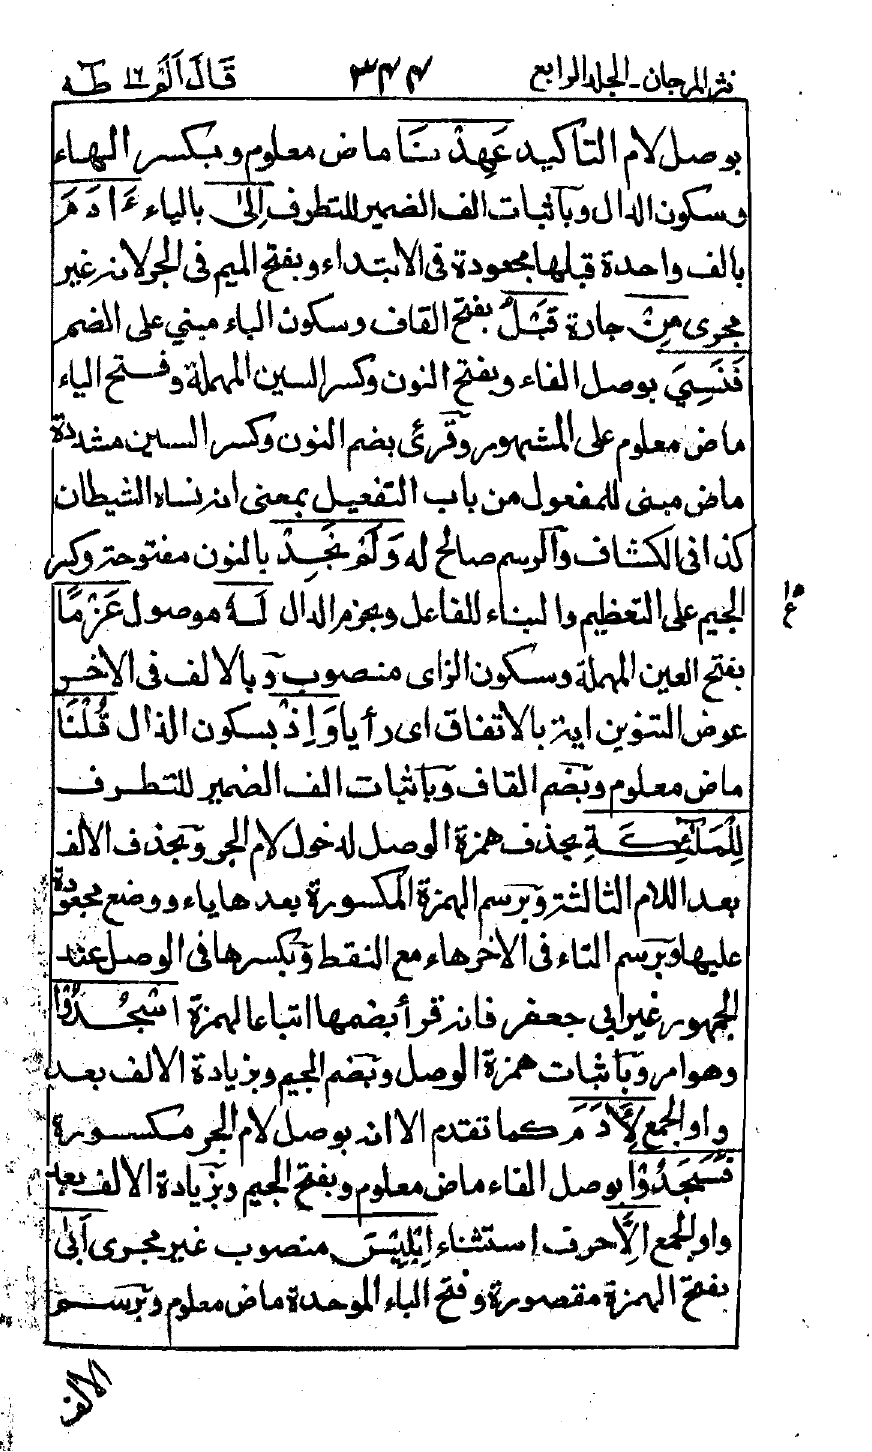 نثر المرجان - الجلد الرابع ٣٤٤ قَالَ اَلَمْ ١٦ طٰهٰ
بوصل لام التأكيد عَهِدْنَا ماض معلوم وبكسر الهاء
وسكون الدال وبآثبات الف الضمير للتطرف اِلىٰ بالياء ءَادَمَ
بالف واحدة قبلها مجعودة فى الابتداء وبفتح الميم فى الجر لانه غير
مجرى مِنْ جارة قَبْلُ بفتح القاف وسكون الباء مبني على الضم
فَنَسِيَ بوصل الفاء وبفتح النون وكسر السين المهملة وفتح الياء
ماض معلوم على المشهور وقرئ بضم النون وكسر السين مشددة
ماض مبنى للمفعول من باب التفعيل بمعنى انه نساه الشيطان
كذا فى الكشاف وآلرسم صالح له وَلَمْ نَجِدْ بالنون مفتوحة وكسر
الجيم على التعظيم والبناء للفاعل وبجزم الدال لَهُ موصول عَزْمًا
بفتح العين المهملة وسكون الزاى منصوب وبالالف فى الاخر
عوض التنوين اينه بالاتفاق اى رأيا وَاِذْ بسكون الذال قُلْنَا
ماض معلوم وبضم القاف وبآثبات الف الضمير للتطرف
لِلْمَلٰٓئِكَةِ بحذف همزة الوصل لدخول لام الجر وبحذف الالف
بعد اللام الثالثة وبرسم الهمزة المكسورة بعدها ياء ووضع مجعودة
عليها وبرسم التاء فى الاخر هاء مع النقط وبكسرها فى الوصل عند
الجمهور غير ابى جعفر فانه قرأ بضمها اتباعا لهمزة اسْجُدُوْا
وهو امر وبآثبات همزة الوصل وبضم الجيم وبزيادة الالف بعد
واو الجمع لِاٰدَمَ كما تقدم الا انه بوصل لام الجر مكسورة
فَسَجَدُوْا بوصل الفاء ماض معلوم وبفتح الجيم وبزيادة الالف بعد
واو الجمع اِلَّا حرف استثناء اِبْلِيْسَ منصوب غير مجرى اَبىٰ
بفتح الهمزة مقصورة وفتح الباء الموحدة ماض معلوم وبرسم
الالف